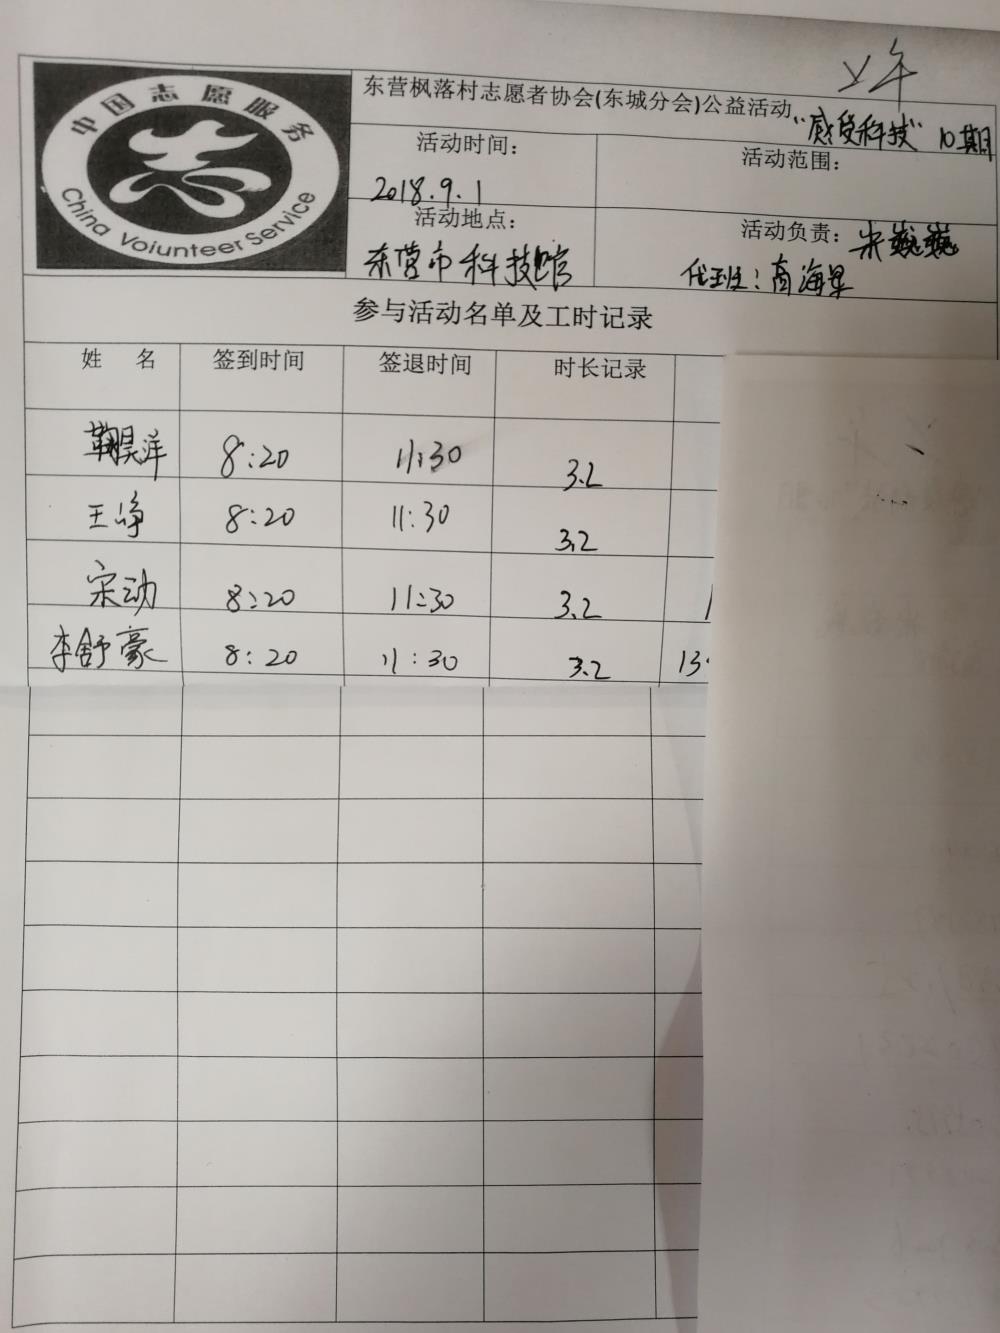 上午
中国志愿服务
China Voiunteer Service
东营枫落村志愿者协会(东城分会)公益活动"感受科技"10期
活动时间:
2018.9.1
活动范围:
活动地点:
东营市科技馆
活动负责:宋巍巍
代班:商海军
参与活动名单及工时记录
姓 名 签到时间 签退时间 时长记录
鞠昊洋 8:20 11:30 3.2
王峥 8:20 11:30 3.2
宋动 8:20 11:30 3.2
李舒豪 8:20 11:30 3.2 13